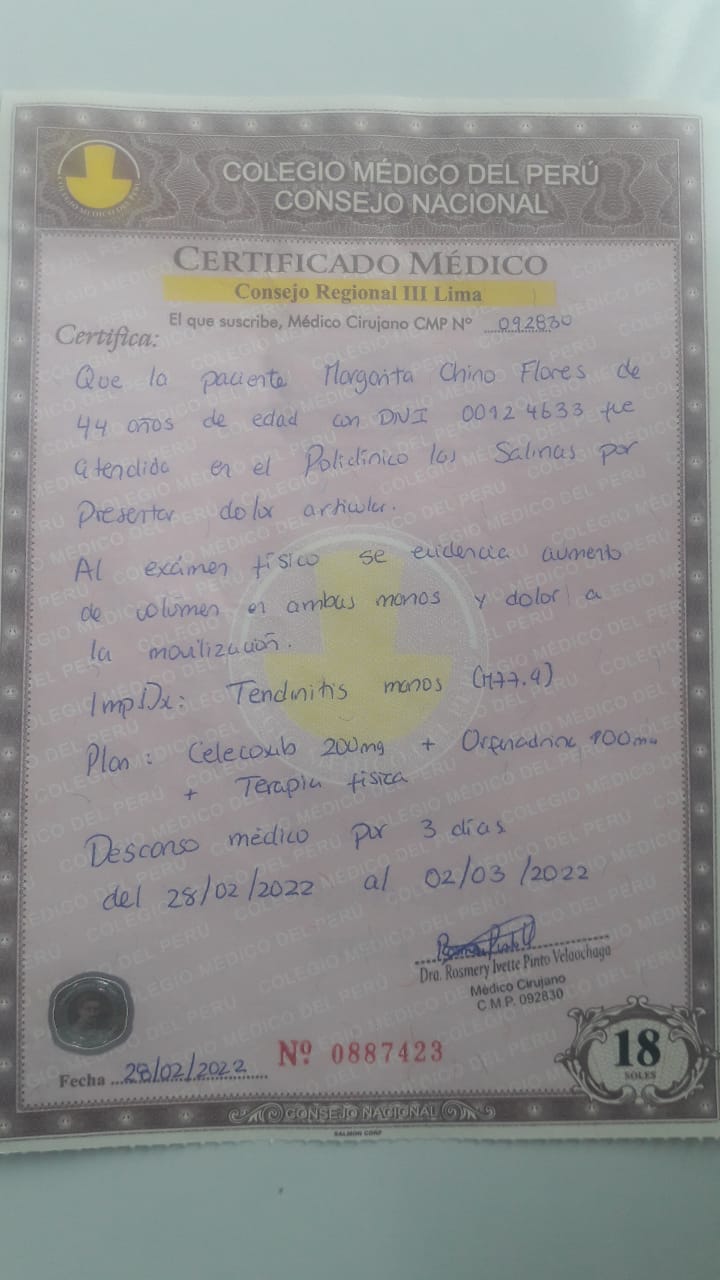 COLEGIO MÉDICO DEL PERÚ
CONSEJO NACIONAL
CERTIFICADO MÉDICO
Consejo Regional III Lima
El que suscribe, Médico Cirujano CMP Nº 092830
Certifica:
Que la paciente Margarita Chino Flores de
44 años de edad con DNI 00124633 fue
atendida en el Policlínico las Salinas por
presentar dolor articular.
Al exámen físico se evidencia aumento
de volúmen en ambas manos y dolor a
la movilización.
Imp Dx: Tendinitis manos (M77.9)
Plan: Celecoxib 200mg + Orfenadrina 100mg
+ Terapia física
Descanso médico por 3 días
del 28/02/2022 al 02/03/2022
Dra. Rosmery Ivette Pinto Velaochaga
Médico Cirujano
C.M.P. 092830
Nº 0887423
18
SOLES
Fecha 28/02/2022
CONSEJO NACIONAL
SALMON CORP